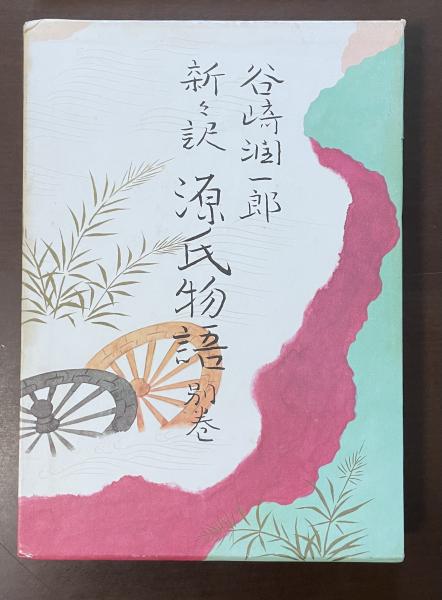 谷崎潤一郎
新々訳 源氏物語 別巻